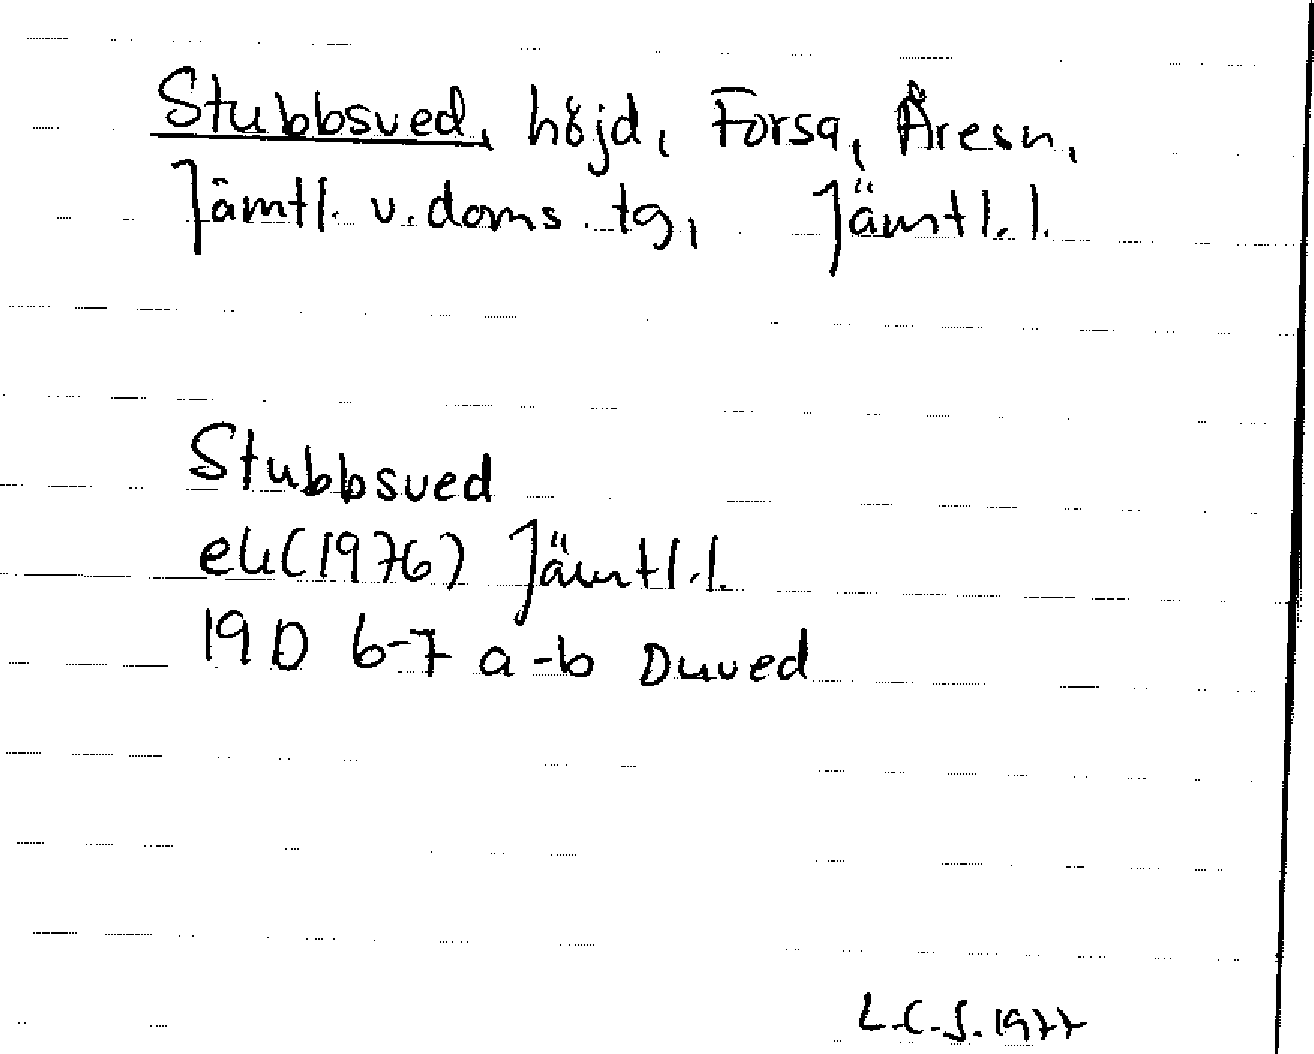 Stubbsved, höjd, Forsa, Åresn,
Jämtl. v. doms. tg, Jämtl. l.
Stubbsved
ek (1976) Jämtl. l.
19 D 6-7 a-b Duved
L.C.S. 1977